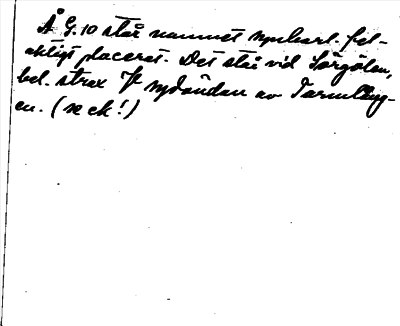 Å G.10 står namnet uppenbarl. fel-
aktigt placerat. Det står vid Långölen,
bel. strax V sydändan av Tarmlång-
en. (se ek!)